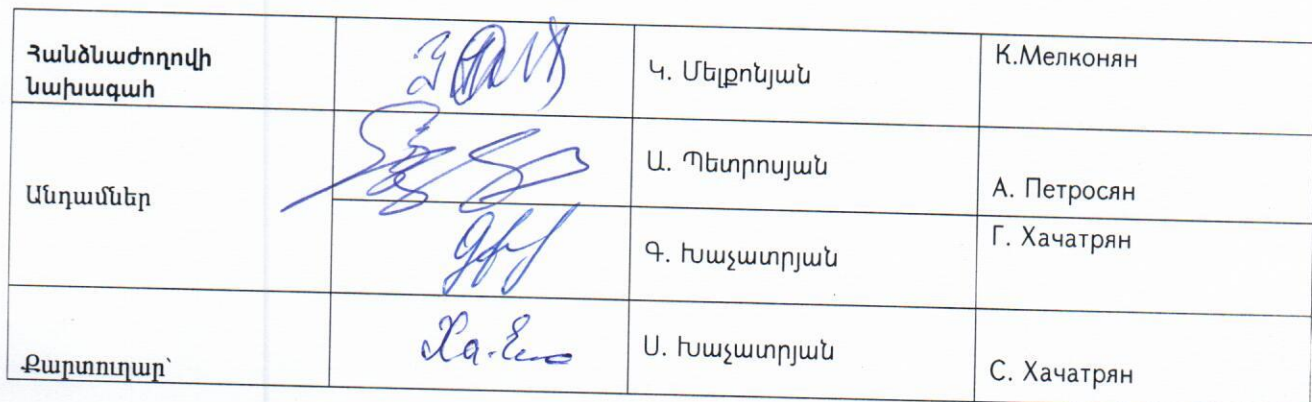 Հանձնաժողովի
նախագահ
Կ. Մելքոնյան
К.Мелконян
Անդամներ
Ա. Պետրոսյան
А. Петросян
Գ. Խաչատրյան
Г. Хачатрян
Քարտուղար՝
Ս. Խաչատրյան
С. Хачатрян